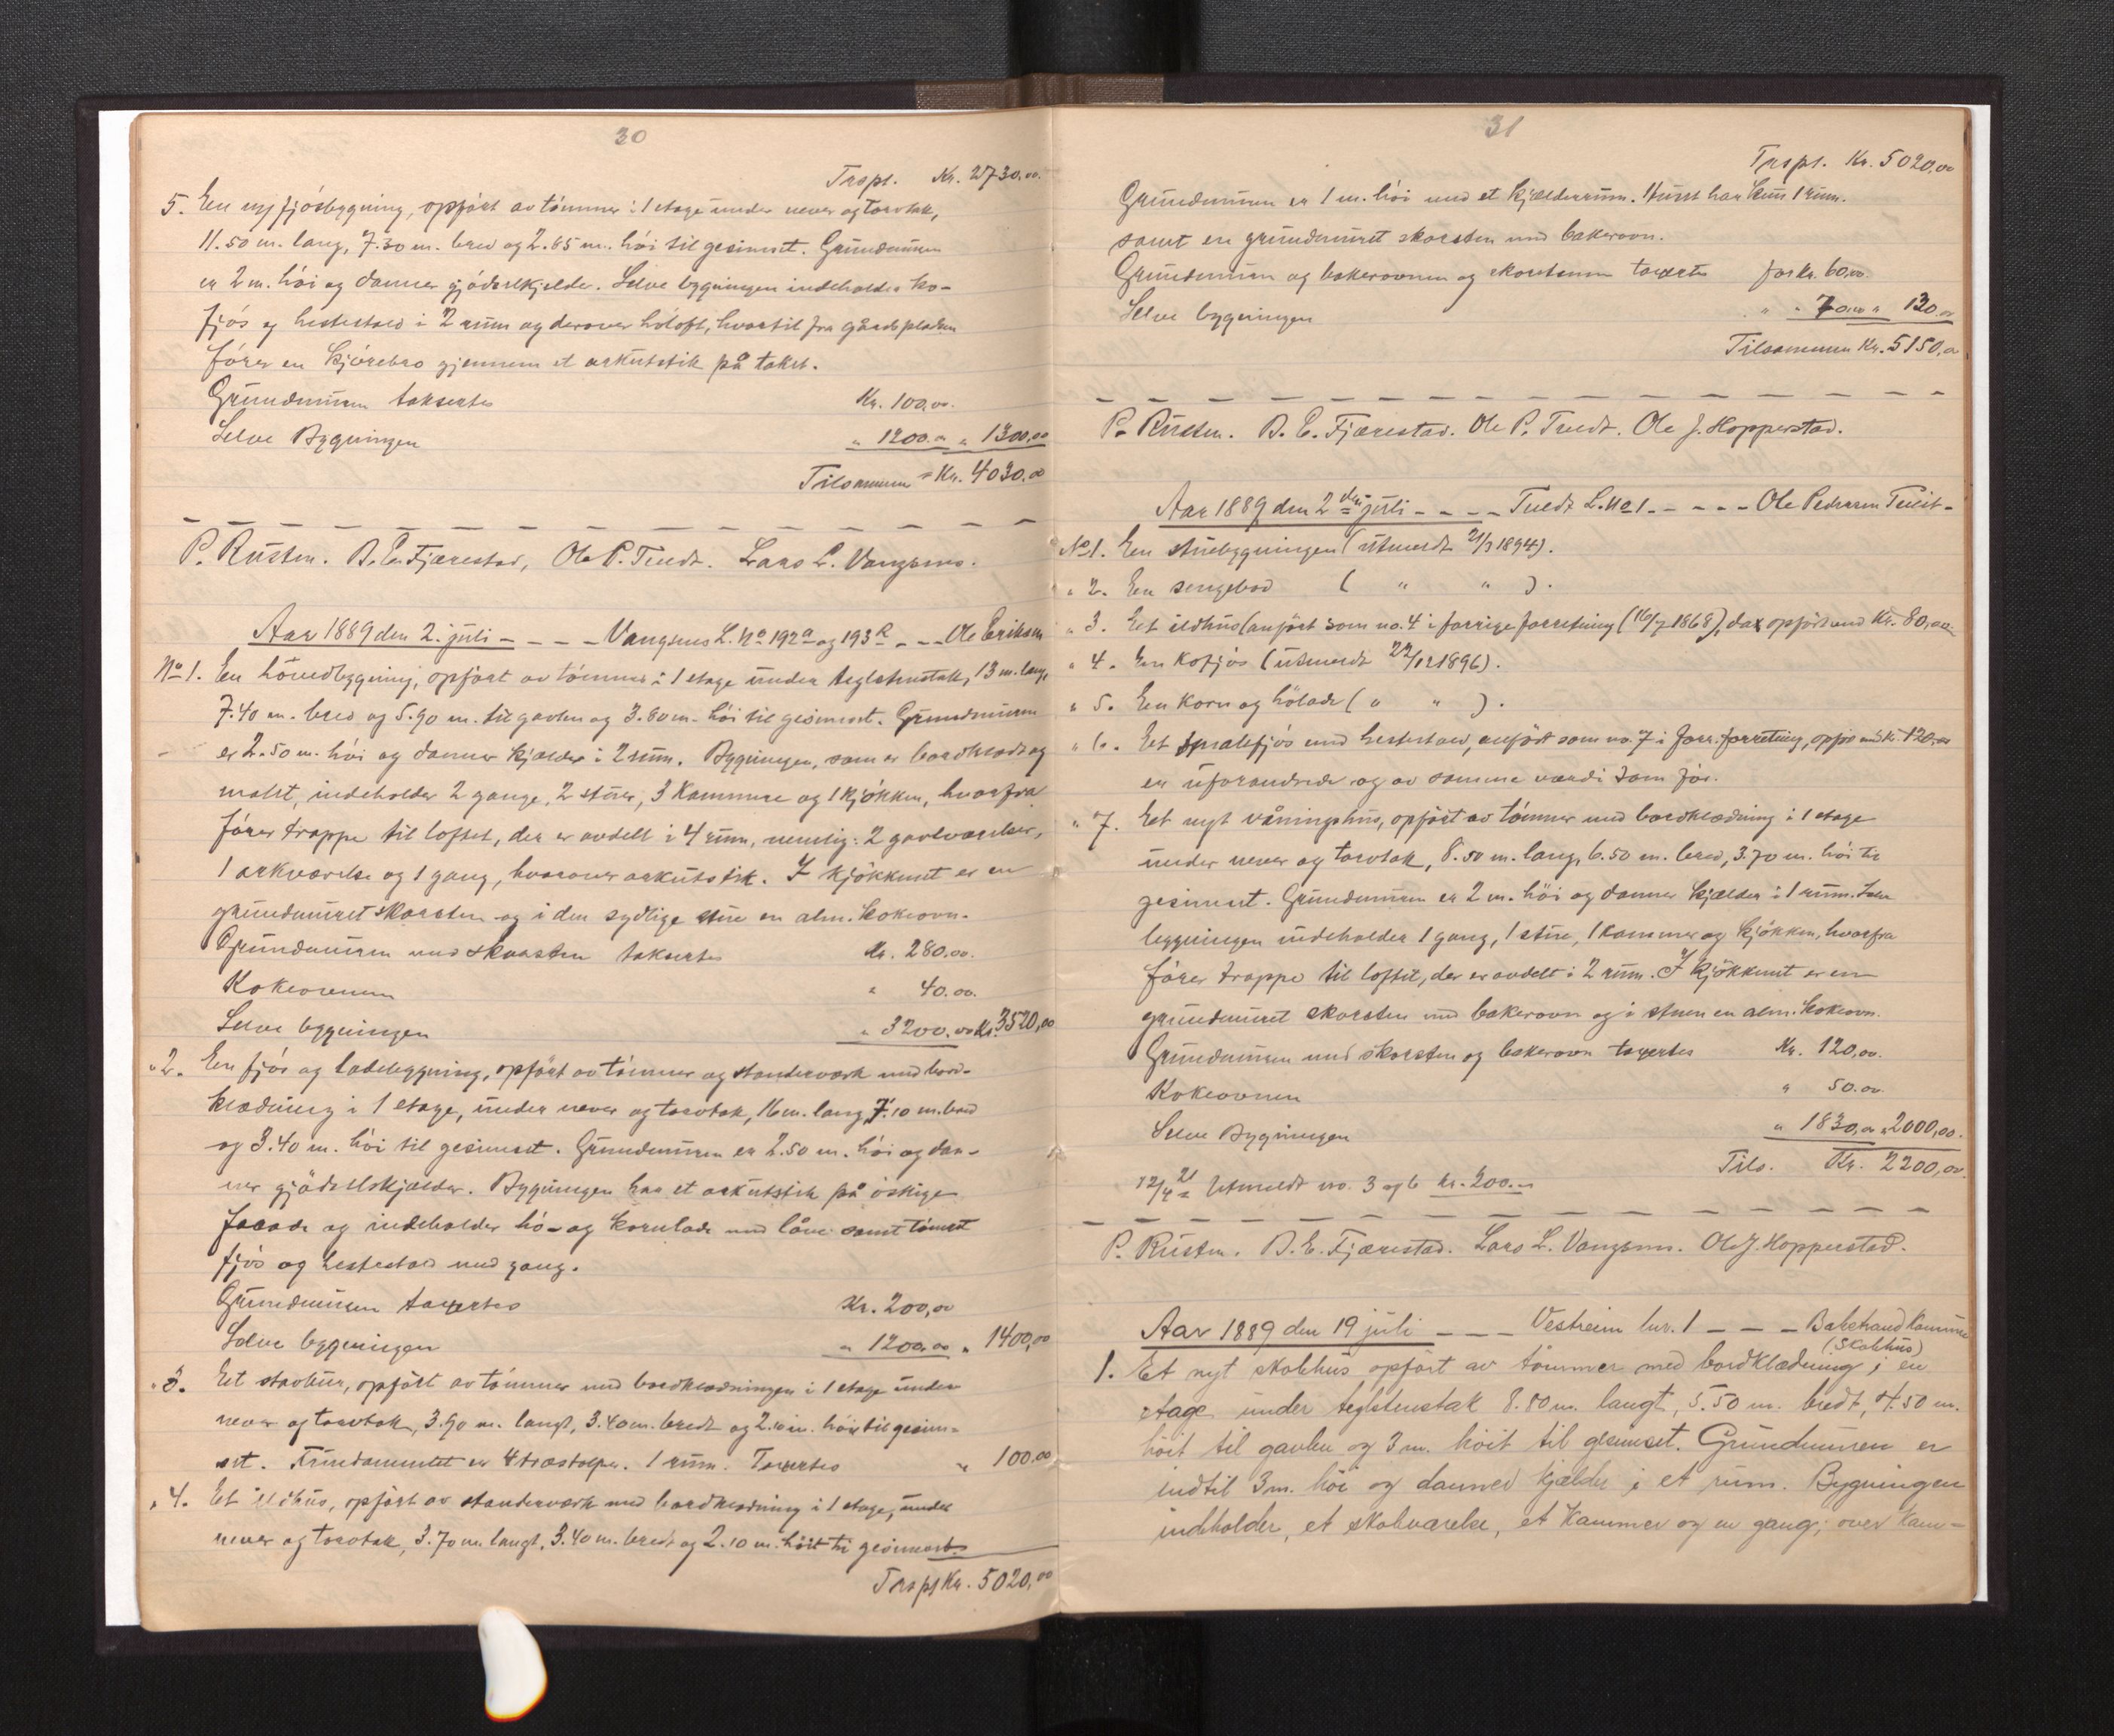 30
Trspt. Kr. 2730.00.
5. En ny fjósbygning, opfört av tömmer i 1 etage under never og torvtak,
11.50 m. lang, 7.30 m. bred og 2.65 m. hói til gesimset. Grundmuren
er 2 m. hói og danner gjödselkjelder. Selve bygningen indeholder ko-
fjós og hestestald i 2 rum og derover höloft, hvortil fra gårdspladsen
förer en kjörebro gjennem et arkutstik på taket.
Grundmuren takseres Kr. 100.00.
Selve Bygningen " 1200.00 " 1300,00
Tilsammen Kr. 4030.00
P. Rusten. B. E. Fjærestad, Ole P. Tuedt. Lars L. Vangsnes.
Aar 1889 den 2. juli - - - - Vangsnes L. No 192a og 193 - - - Ole Eriksen
No 1. En hövedbygning, opfört av tömmer i 1 etage under teglstenstak, 13 m. lang,
7.40 m. bred og 5.90 m. til gavlen og 3.80 m. hói til gesimset. Grundmuren
er 2.50 m. hói og danner kjælder i 2 rum. Bygningen, som er bordklædt og
malet, indeholder 2 gange, 2 stuer, 3 kammere og 1 kjökken, hvorfra
förer trappe til loftet, der er avdelt i 4 rum, nemlig: 2 gavlværelser,
1 arkværelse og 1 gang, hvorover arkutstik. I kjökkenet er en
grundmuret skorsten og i den sydlige stue en alm. kokeovn.
Grundmuren med skorsten takseres Kr. 280.00.
Kokeovnen " 40.00.
Selve bygningen " 3200.00 Kr. 3520,00
" 2. En fjós og ladebygning, opfört av tömmer og standerværk med bord-
klædning i 1 etage, under never og torvtak, 16 m. lang, 7.10 m. bred
og 3.40 m. hói til gesimset. Grundmuren er 2.50 m. hói og dan-
ner gjödselskjælder. Bygningen har et arkutstik på östlige
facade og indeholder hó- og kornlade med låve samt tömret
fjós og hestestald med gang.
Grundmuren taxertes Kr. 200,00
Selve bygningen " 1200,00 " 1400,00
" 3. Et stavbur, opfört av tömmer med bordklædningen i 1 etage under
never og torvtak, 3.90 m. langt, 3.40 m. bredt og 2.10 m. höi til gesim-
set. Fundamentet er 4 træstolper. 1 rum. Taxertes " 100.00
" 4. Et ildhus, opfört av standerværk med bordklædning i 1 etage, under
never og torvtak, 3.70 m. langt, 3.40 m. bredt og 2.10 m. höit til gesimset.
Trspt Kr. 5020,00
31
Trspt. Kr. 5020,00
Grundmuren er 1 m. hói med et kjælderrum. Huset har kun 1 rum.
samt en grundmuret skorsten med bakerovn.
Grundmuren og bakerovnen og skorstenen taxertes for Kr. 60,00.
Selve bygningen " " 70,00 " 130.00
Tilsammen Kr. 5150,00
P. Rusten. B. E. Fjærestad. Ole P. Tuedt. Ole J. Hopperstad.
Aar 1889 den 2den juli - - - - Tuedt L. No 1 - - - - - Ole Pedersen Tuedt -
No 1. En stuebygningen (utmeldt 21/3 1894).
" 2. En sengebod ( " " ).
" 3. Et ildhus (anfört som no. 4 i forrige forretning (16/7 1868), dar opförd med Kr. 80,00
" 4. En kofjós (utmeldt 22/12 1896).
" 5. En korn og hölade ( " " ).
" 6. Et smalefjós med hestestald, anfört som no. 7 i forr. forretning, opför med Kr. 120,00
er uforandrede og av samme værdi som för.
" 7. Et nyt våningshus, opfört av tömmer med bordklædning i 1 etage
under never og torvtak, 8.50 m. lang, 6.50 m. bred, 3.70 m. hói til
gesimset. Grundmuren er 2 m. hói og danner kjælder i 1 rum. Selve
bygningen indeholder 1 gang, 1 stue, 1 kammer og kjökken, hvorfra
förer trappe til loftet, der er avdelt i 2 rum. I kjökkenet er en
grundmuret skorsten med bakerovn og i stuen en alm. kokeovn.
Grundmuren med skorsten og bakerovn taxertes Kr. 120,00.
Kokeovnen " 50.00
Selve Bygningen " 1830,00 " 2000,00.
Tils. Kr. 2200,00
12/4 21 Utmeldt no. 3 og 6 Kr. 200.00
P. Rusten. B. E. Fjærestad. Lars L. Vangsnes. Ole J. Hopperstad.
Aar 1889 den 19 juli - - - Vestreim lnr. 1 - - - Balestrand Kommune
(Skolehus)
1. Et nyt skolehus opfört av tömmer med bordklædning i en
etage under teglstenstak 8.80 m. langt, 5.50 m. bredt, 4.50 m.
höit til gavlen og 3 m. höit til gesimset. Grundmuren er
indtil 3 m. höi og danner kjælder i et rum. Bygningen
indeholder, et skoleværelse, et kammer og en gang; over kam-